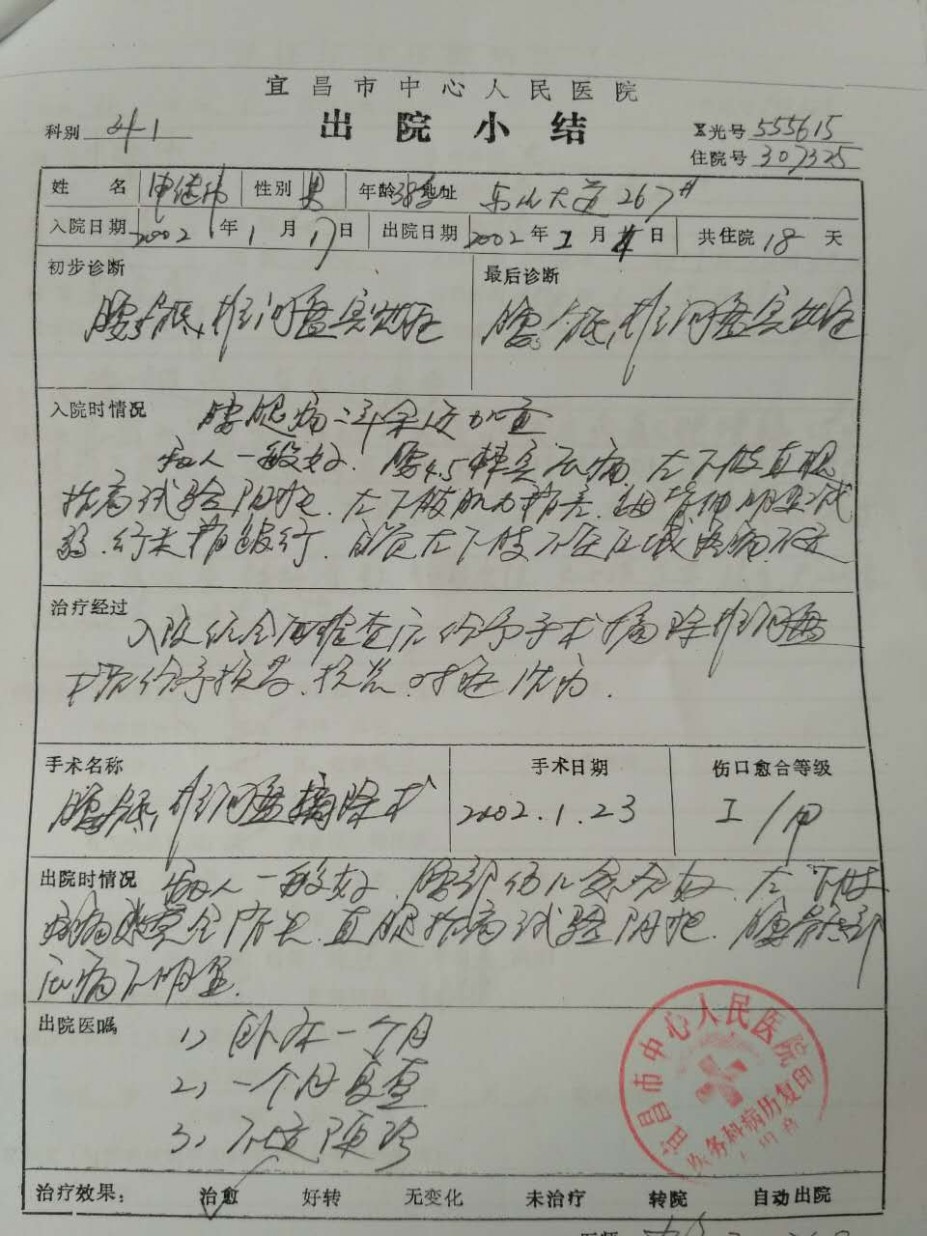 宜昌市中心人民医院
出院小结
科别
X光号 555615
住院号 307325
姓名 申继伟 性别 男 年龄 38岁 地址 东山大道267#
入院日期 2002年1月17日 出院日期 2002年2月4日 共住院18天
初步诊断
最后诊断
腰5骶1椎间盘突出症
腰5骶1椎间盘突出症
入院时情况 腰腿痛二年余
病人一般好. 腰4.5棘突压痛. 左下肢直腿
抬高试验阳性. 左下肢肌力稍差. 拇背伸明显减
弱. 行走稍跛行.
治疗经过
入院后全面检查后给予手术摘除椎间盘
术后给予
手术名称
手术日期
伤口愈合等级
腰5骶1椎间盘摘除术
2002.1.23
I/甲
出院时情况 病人一般好. 腰部伤口愈合好. 左下肢
疼痛 完全消失. 直腿抬高试验阴性. 腰骶部
压痛不明显.
出院医嘱
1) 卧床一个月
2) 一个月复查
3) 不适随诊
宜昌市中心人民医院
医务科病历复印
治疗效果: 治愈 好转 无变化 未治疗 转院 自动出院